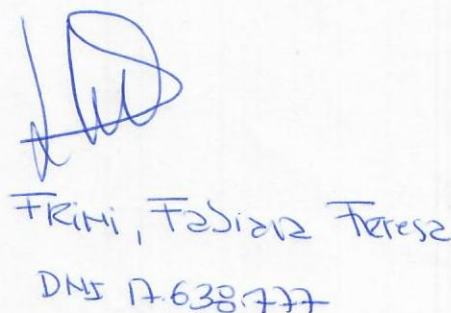 FRiMi, Fabiana Teresa
DNI 17.638.777